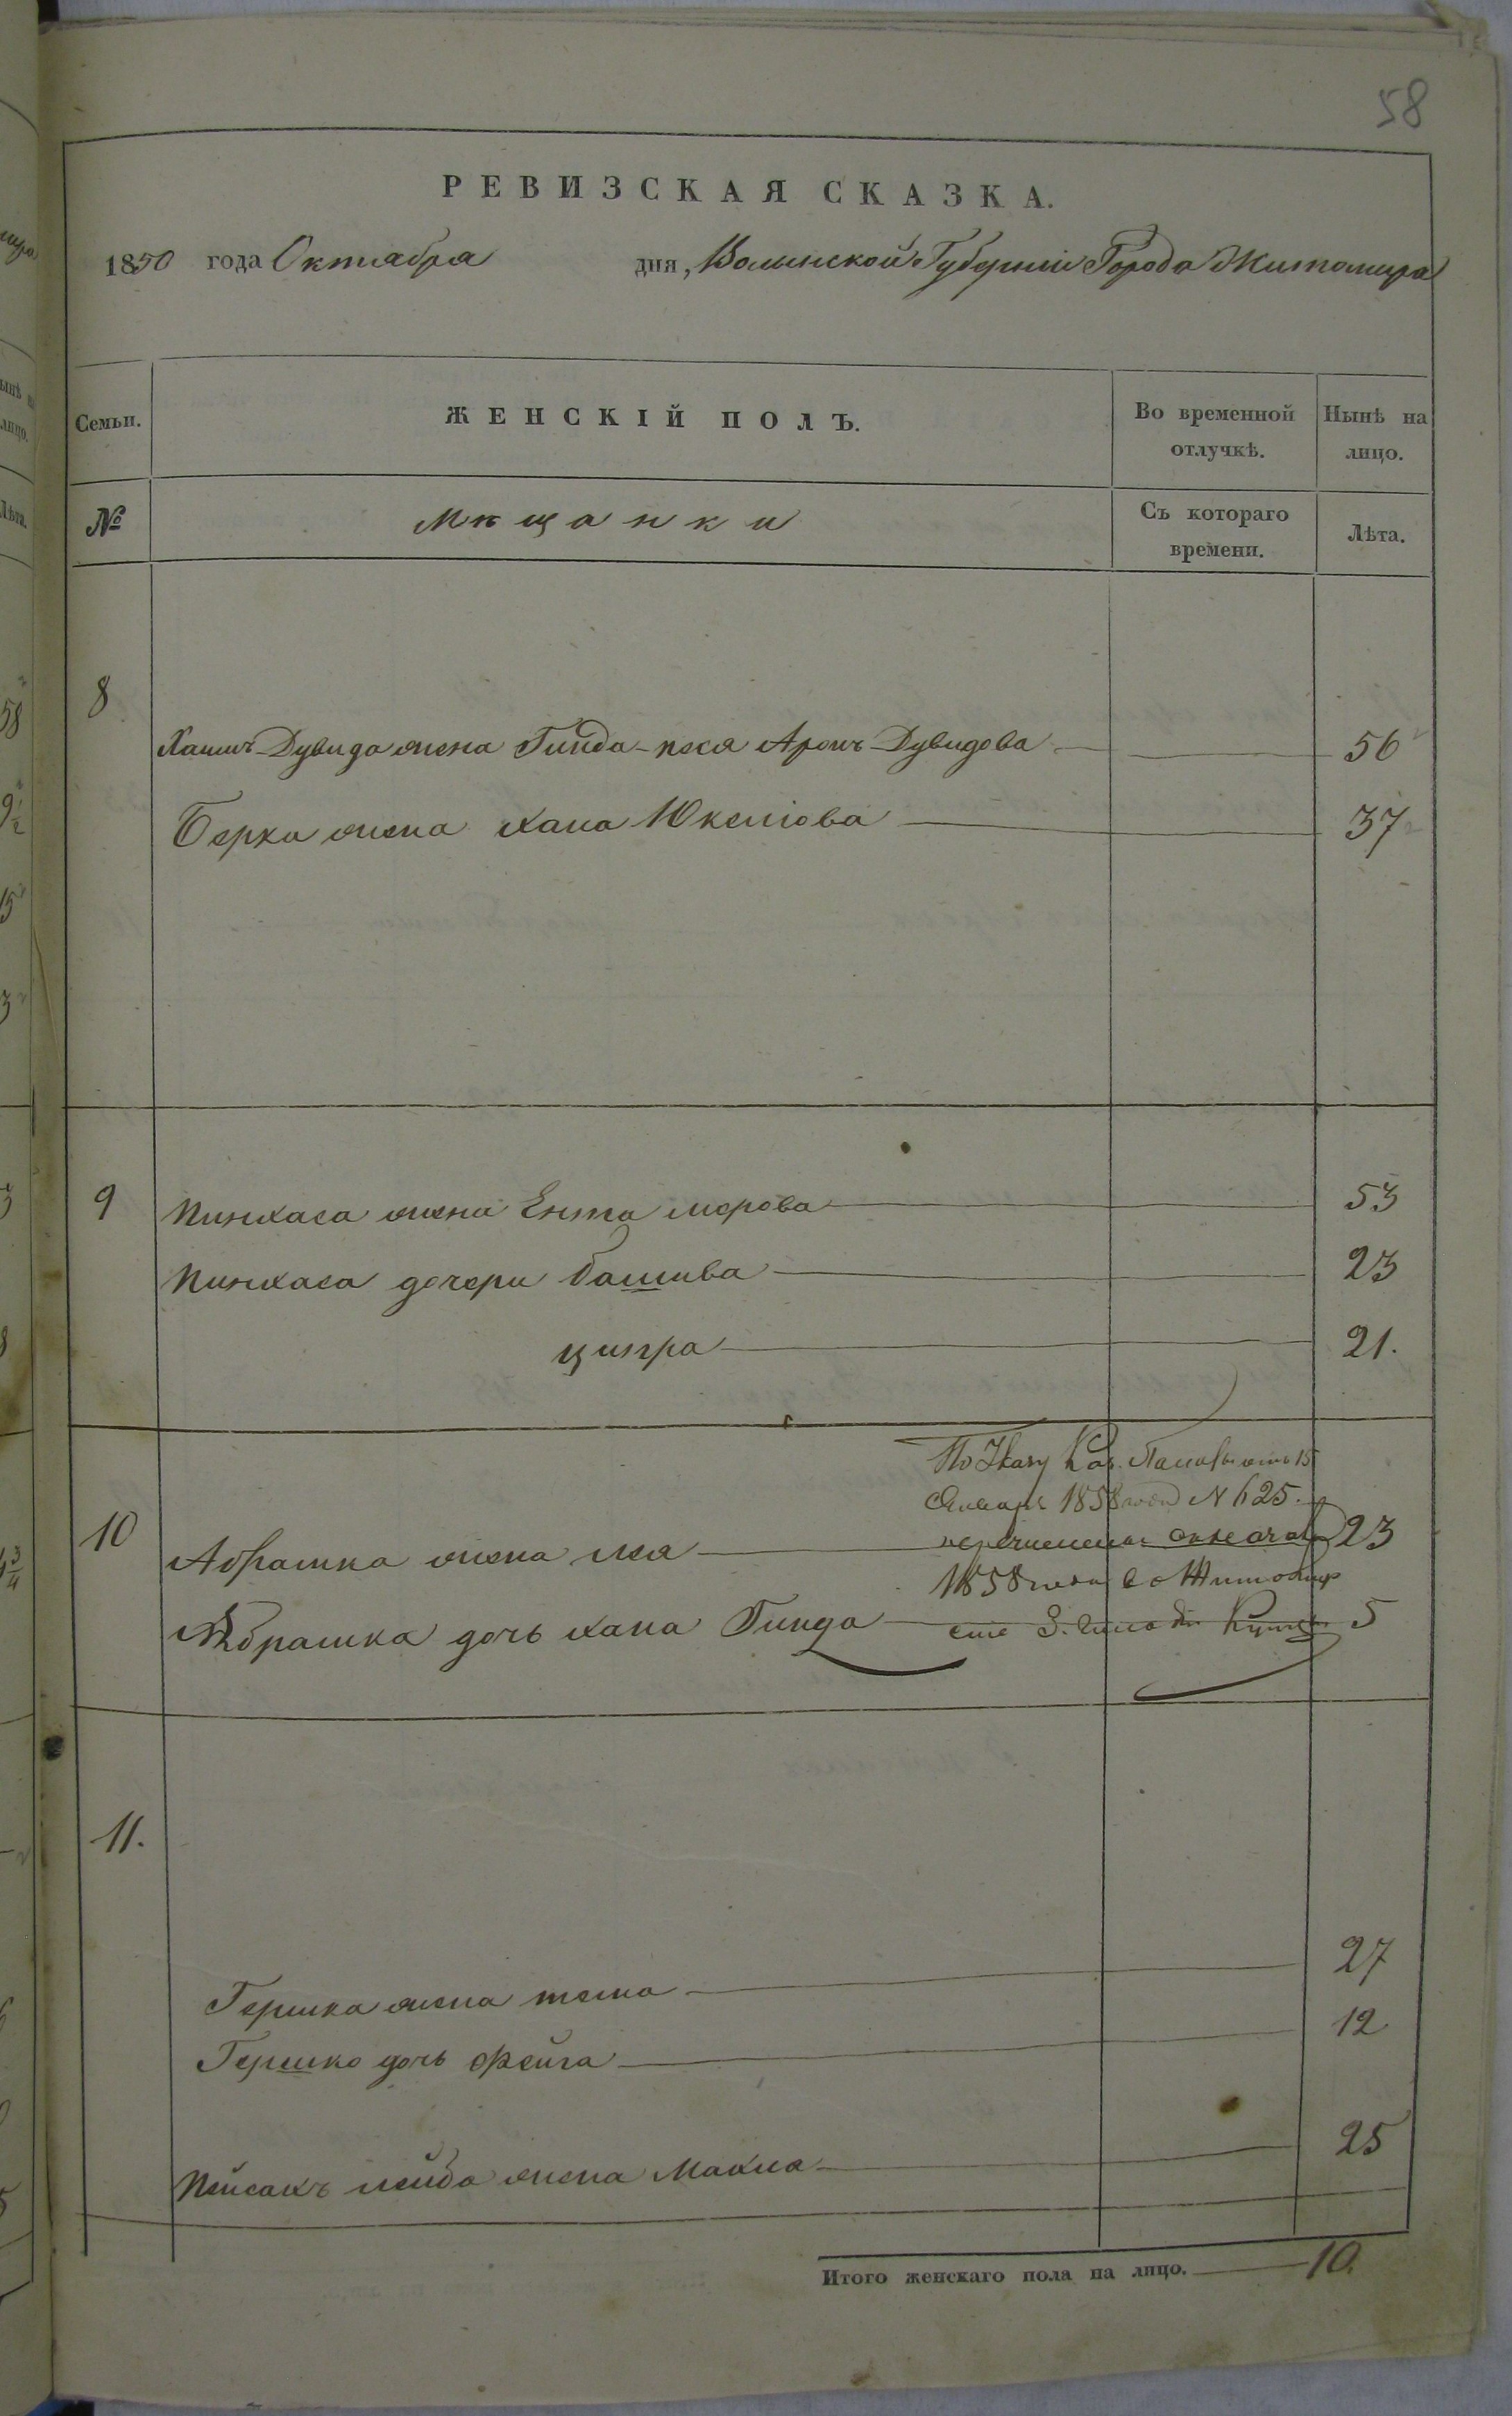 58
РЕВИЗСКАЯ СКАЗКА.
1850 года Октября дня, Волынской Губерніи Города Житомира
Семьи. ЖЕНСКІЙ ПОЛЪ. Во временной отлучкѣ. Нынѣ на лицо.
№ Мѣщанки Съ котораго времени. Лѣта.
8
Хаимъ-Дувида жена Гинда-песя Аронъ-Дувидова 56
Берка жена хана 37
9 Пинхаса жена Ента мерова 53
Пинхаса дочери башива 23
ципра 21.
По Указу Каз. Палаты отъ 15
Января 1858 года N 625.
10 Абрашка жена лея перечислена 23
1858 года въ Житомир
Абрашка дочь хана Гинда 5
11.
Гершка жена тема 27
Гершко дочь Фейга 12
Пейсахъ лейба жена Махла 25
Итого женскаго пола на лицо. 10.